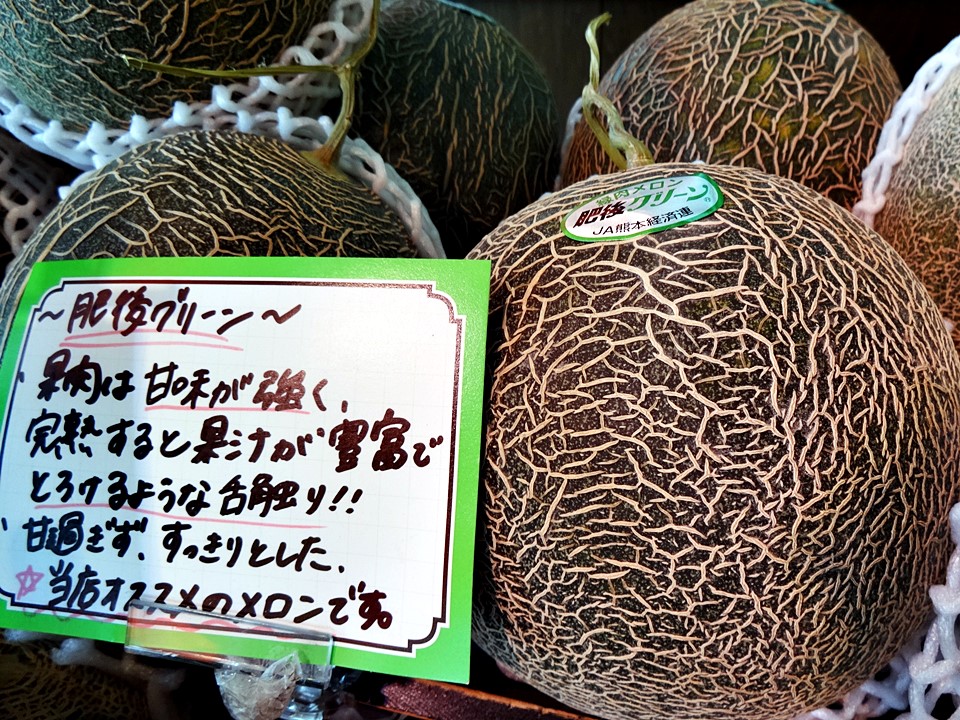 緑肉メロン
肥後グリーン
JA熊本経済連
～肥後グリーン～
果肉は甘味が強く、
完熟すると果汁が豊富で
とろけるような舌触り!!
甘過ぎず、すっきりとした、
☆当店オススメのメロンです。